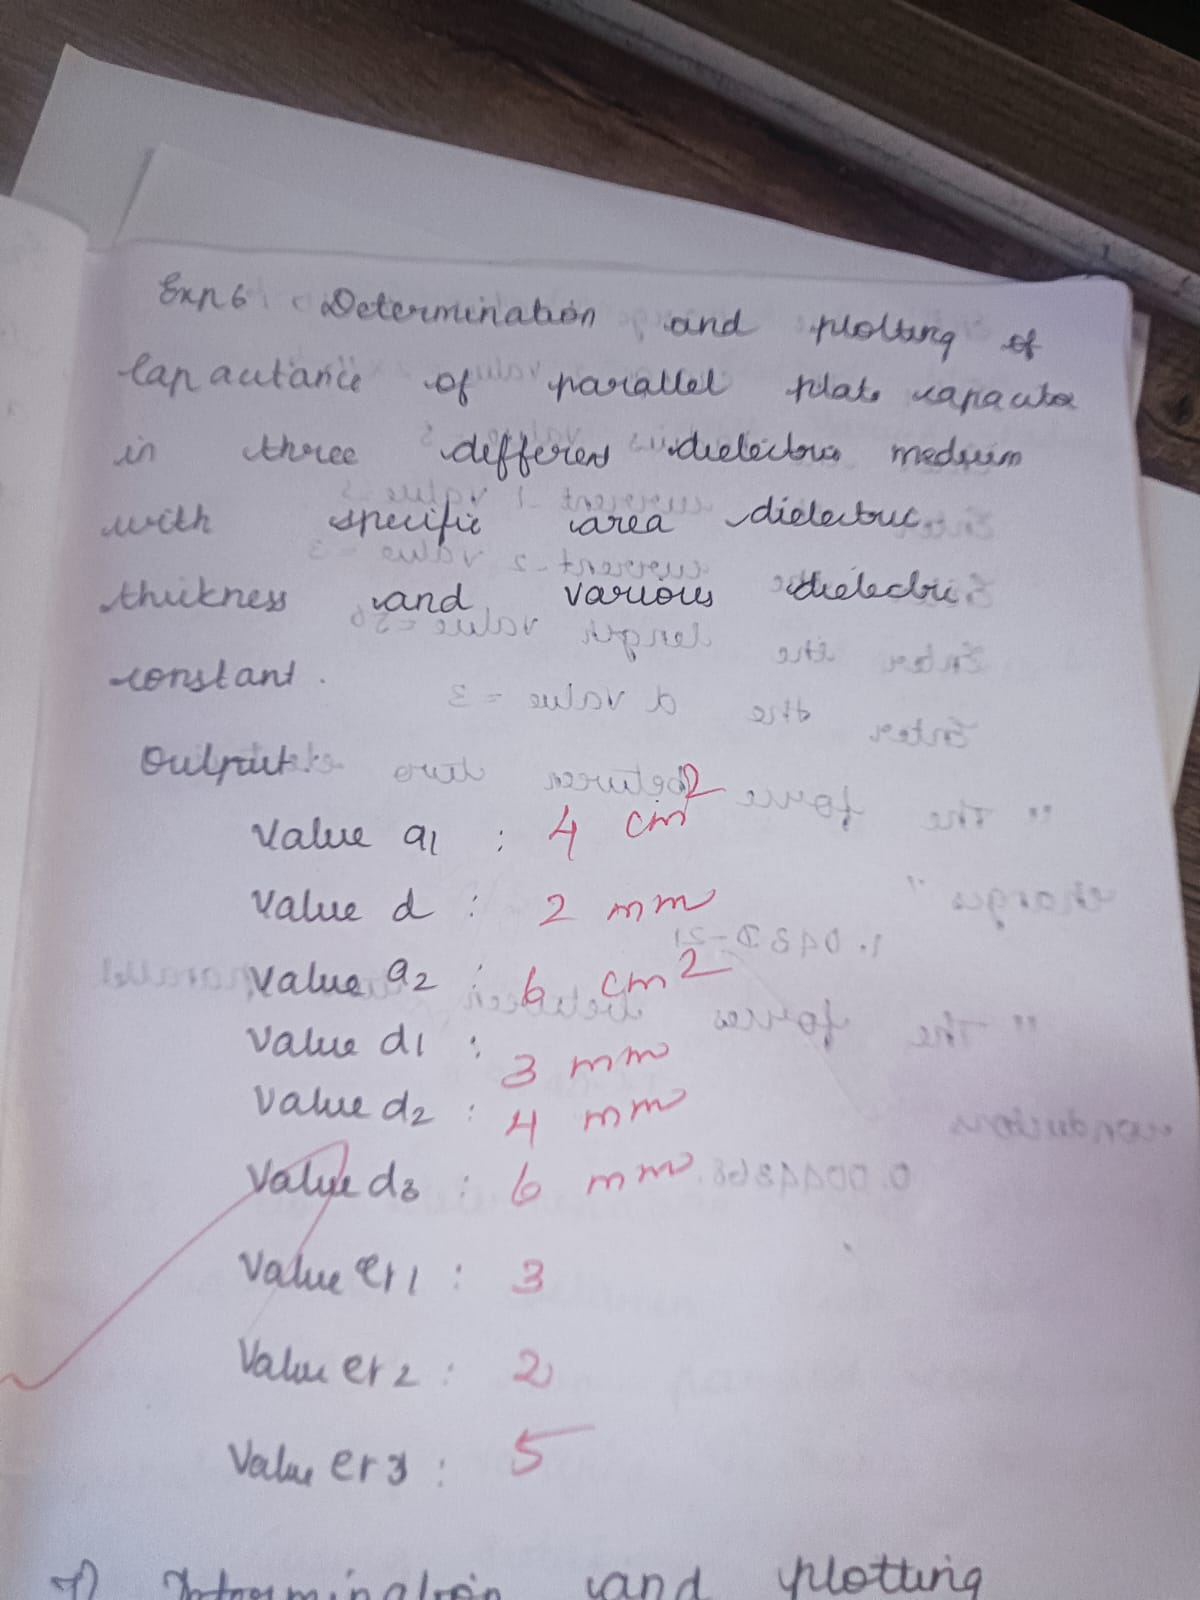 Exp 6 : Determination and plotting of
Capacitance of parallel plate capacitor
in three different dielectric medium
with specific area dielectric
thickness and various dielectric
constant.
Output
Value a1 : 4 cm²
Value d : 2 mm
Value a2 : 6 cm²
Value d1 : 3 mm
Value d2 : 4 mm
Value d3 : 6 mm
Value er1 : 3
Value er2 : 2
Value er3 : 5
7) Determination and plotting